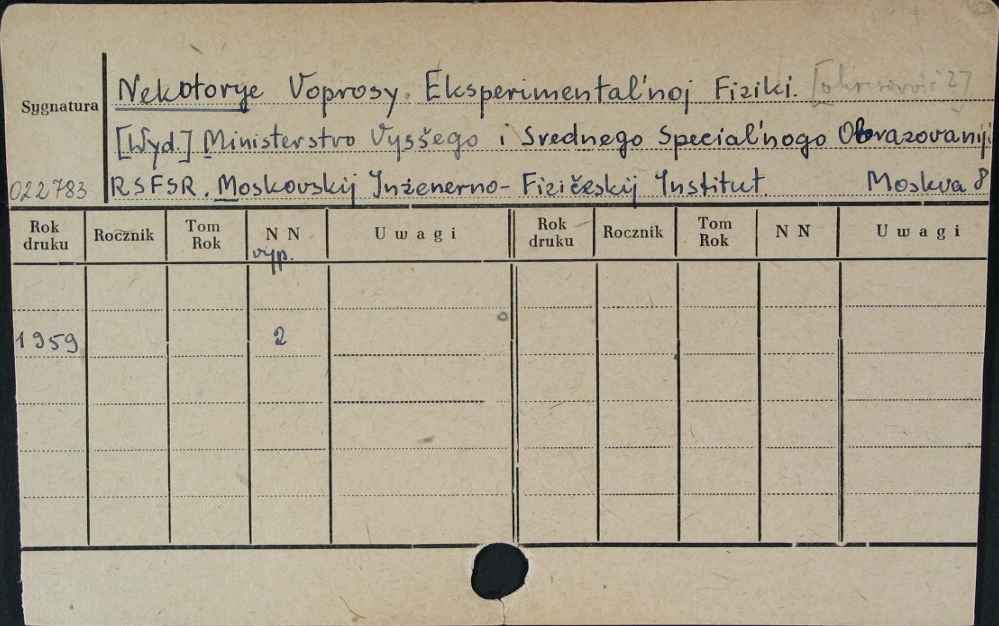 Nekotorye Voprosy Eksperimental'noj Fiziki.
Sygnatura
[Wyd.] Ministerstvo Vysšego i Srednego Special'nogo Obrazovanija
022783 RSFSR. Moskovskij Inženerno-Fizičeskij Institut Moskva 8°
Rok druku Rocznik Tom Rok N N Uwagi Rok druku Rocznik Tom Rok N N Uwagi
vyp.
1959 2